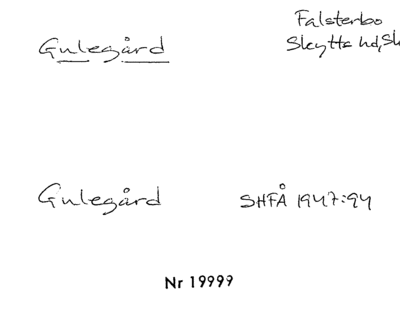 Gulegård
Falsterbo
Skytts hd, Sk
Gulegård
SHFÅ 1947:94
Nr 19999